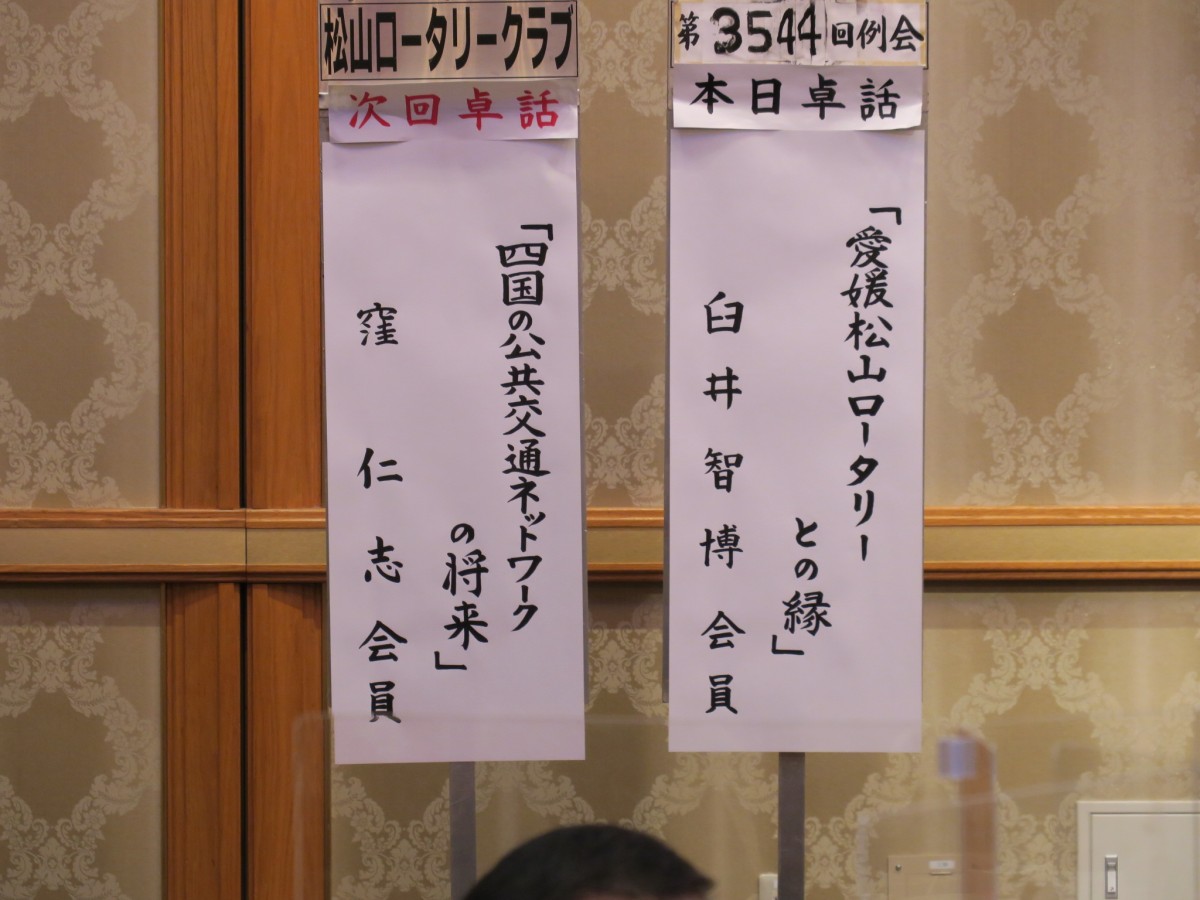 第3544回例会
本日卓話
「愛媛松山ロータリー
との縁」
臼井智博会員
松山ロータリークラブ
次回卓話
「四国の公共交通ネットワーク
の将来」
窪仁志会員